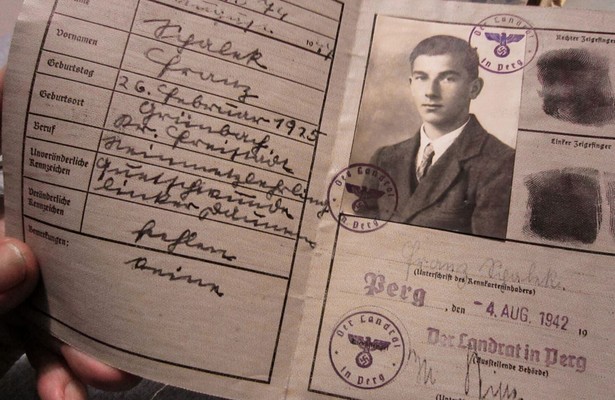 1944
Vornamen
Franz
Geburtstag
26. Februar 1925
Geburtsort
Grünbach
Kr. Freistadt
Beruf
Steinmetzlehrling
Unveränderliche
Kennzeichen
Quetschwunde
linker Daumen
Veränderliche
Kennzeichen
fehlen
Bemerkungen:
keine
Der Landrat
in Perg
Der Landrat
in Perg
Rechter Zeigefinger
Linker Zeigefinger
Franz
(Unterschrift des Kennkarteninhabers)
Perg, den -4. AUG. 1942 19
Der Landrat
in Perg
Der Landrat in Perg
(Ausstellende Behörde)